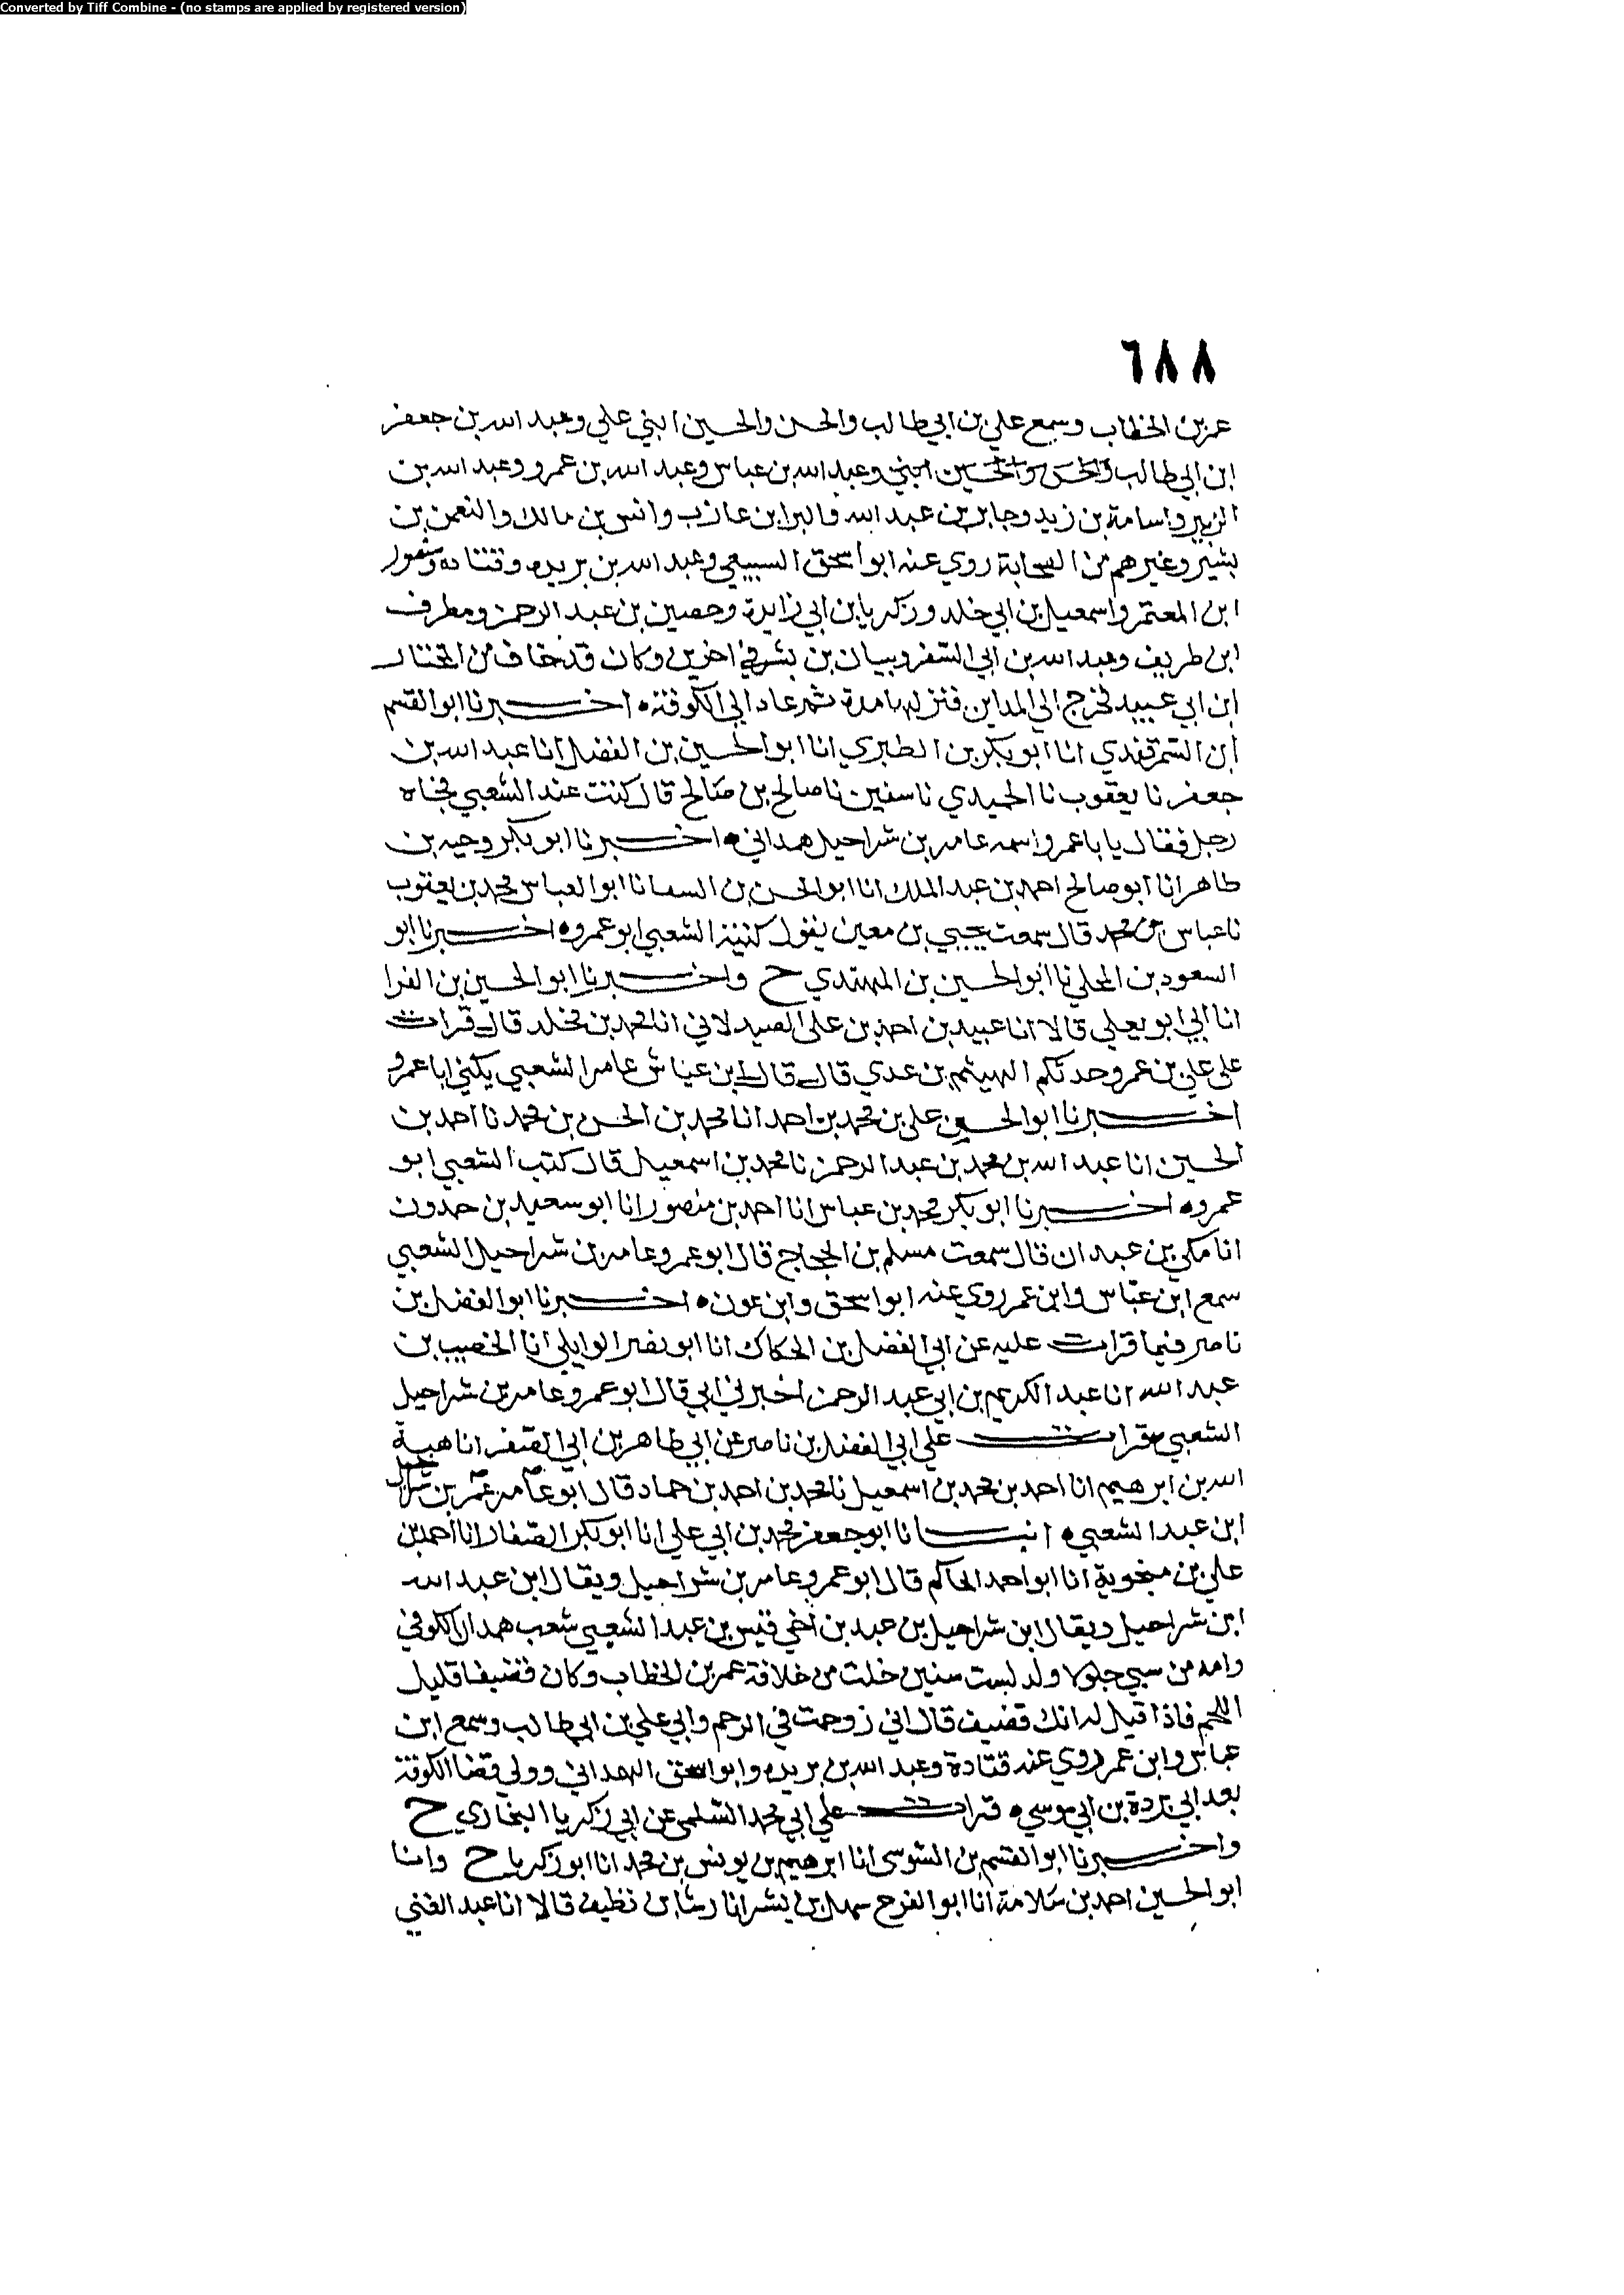 Converted by Tiff Combine - (no stamps are applied by registered version)
٦٨٨
عمر بن الخطاب وسمع علي بن ابي طالب والحسن والحسين ابني علي وعبد الله بن جعفر
ابن ابي طالب والحسن والحسين ابني وعبد الله بن عباس وعبد الله بن عمرو وعبد الله بن
الزبير واسامة بن زيد وجابر بن عبد الله والبرا بن عازب وانس بن مالك والنعمن بن
بشير وغيرهم من الصحابة روي عنه ابو اسحق السبيعي وعبد الله بن بريده وقتاده ومنصور
ابن المعتمر واسمعيل بن ابي خلد وزكريا بن ابي زايدة وحصين بن عبد الرحمن ومطرف
ابن طريف وعبد الله بن ابي السفر وبيان بن بشر في اخرين وكان قد خاف من المختار
ابن ابي عبيد فخرج الي المداين فنزلها مدة ثم عاد الي الكوفة ه اخبرنا ابو القسم
ابن السمرقندي انا ابو بكر بن الطبري انا ابو الحسين بن الفضل انا عبد الله بن
جعفر نا يعقوب نا الحميدي نا سفين نا صالح بن صالح قال كنت عند الشعبي فجاه
رجل فقال يا با عمرو اسمه عامر بن شراحيل همداني ه اخبرنا ابو بكر وجيه بن
طاهر انا ابو صالح احمد بن عبد الملك انا ابو الحسن بن السقا نا ابو العباس محمد بن يعقوب
نا عباس بن محمد قال سمعت يحيي بن معين يقول كنية الشعبي ابو عمرو ه اخبرنا ابو
السعود بن المجلي نا ابو الحسين بن المهتدي ح واخبرنا ابو الحسين بن الفرا
انا ابي ابو يعلي قالا انا عبيد بن احمد بن علي الصيدلاني انا محمد بن مخلد قال قرات
علي علي بن عمرو حدثكم الهيثم بن عدي قال قال ابن عياش عامر الشعبي يكني ابا عمرو
اخبرنا ابو الحسين علي بن محمد بن احمد انا محمد بن الحسن بن محمد نا احمد بن
الحسين انا عبد الله بن محمد بن عبد الرحمن نا محمد بن اسمعيل قال كتب الشعبي ابو
عمرو ه اخبرنا ابو بكر محمد بن عباس انا احمد بن منصور انا ابو سعيد بن حمدون
انا مكي بن عبدان قال سمعت مسلم بن الحجاج قال ابو عمرو عامر بن شراحيل الشعبي
سمع ابن عباس وابن عمر روي عنه ابو اسحق وابن عون ه اخبرنا ابو الفضل بن
ناصر فيما قرات عليه عن ابي الفضل بن الحكاك انا ابو نصر الوايلي انا الخصيب بن
عبد الله انا عبد الكريم بن ابي عبد الرحمن اخبرني ابي قال ابو عمرو عامر بن شراحيل
الشعبي ه قرات علي ابي الفضل بن ناصر عن ابي طاهر بن ابي الصقر انا هبة
الله بن ابرهيم انا احمد بن محمد بن اسمعيل نا محمد بن احمد بن حماد قال ابو عامر عمر بن شراحيل
ابن عبد الشعبي ه انبانا ابو جعفر محمد بن ابي علي انا ابو بكر الصفار انا احمد بن
علي بن منجوية انا ابو احمد الحاكم قال ابو عمرو عامر بن شراحيل ويقال ابن عبد الله
ابن شراحيل ويقال ابن شراحيل بن عبد بن اخي قيس بن عبد الشعبي شعب همدان الكوفي
وامه من سبي جلولا ولد لست سنين خلت من خلافة عمر بن الخطاب وكان قضيفا قليل
اللحم فاذا قيل له انك قضيف قال اني زوحمت في الرحم وابي علي بن ابي طالب وسمع ابن
عباس وابن عمر روي عنه قتادة وعبد الله بن بريده وابو اسحق الهمداني وولي قضا الكوفة
بعد ابي بردة بن ابي موسي ه قرات علي ابي محمد السلمي عن ابي زكريا البخاري ح
واخبرنا ابو القسم بن السوسي انا ابرهيم بن يونس بن محمد انا ابو زكريا ح وانبا
ابو الحسين احمد بن سلامة انا ابو الفرج سهل بن بشر انا رشا بن نظيف قالا انا عبد الغني